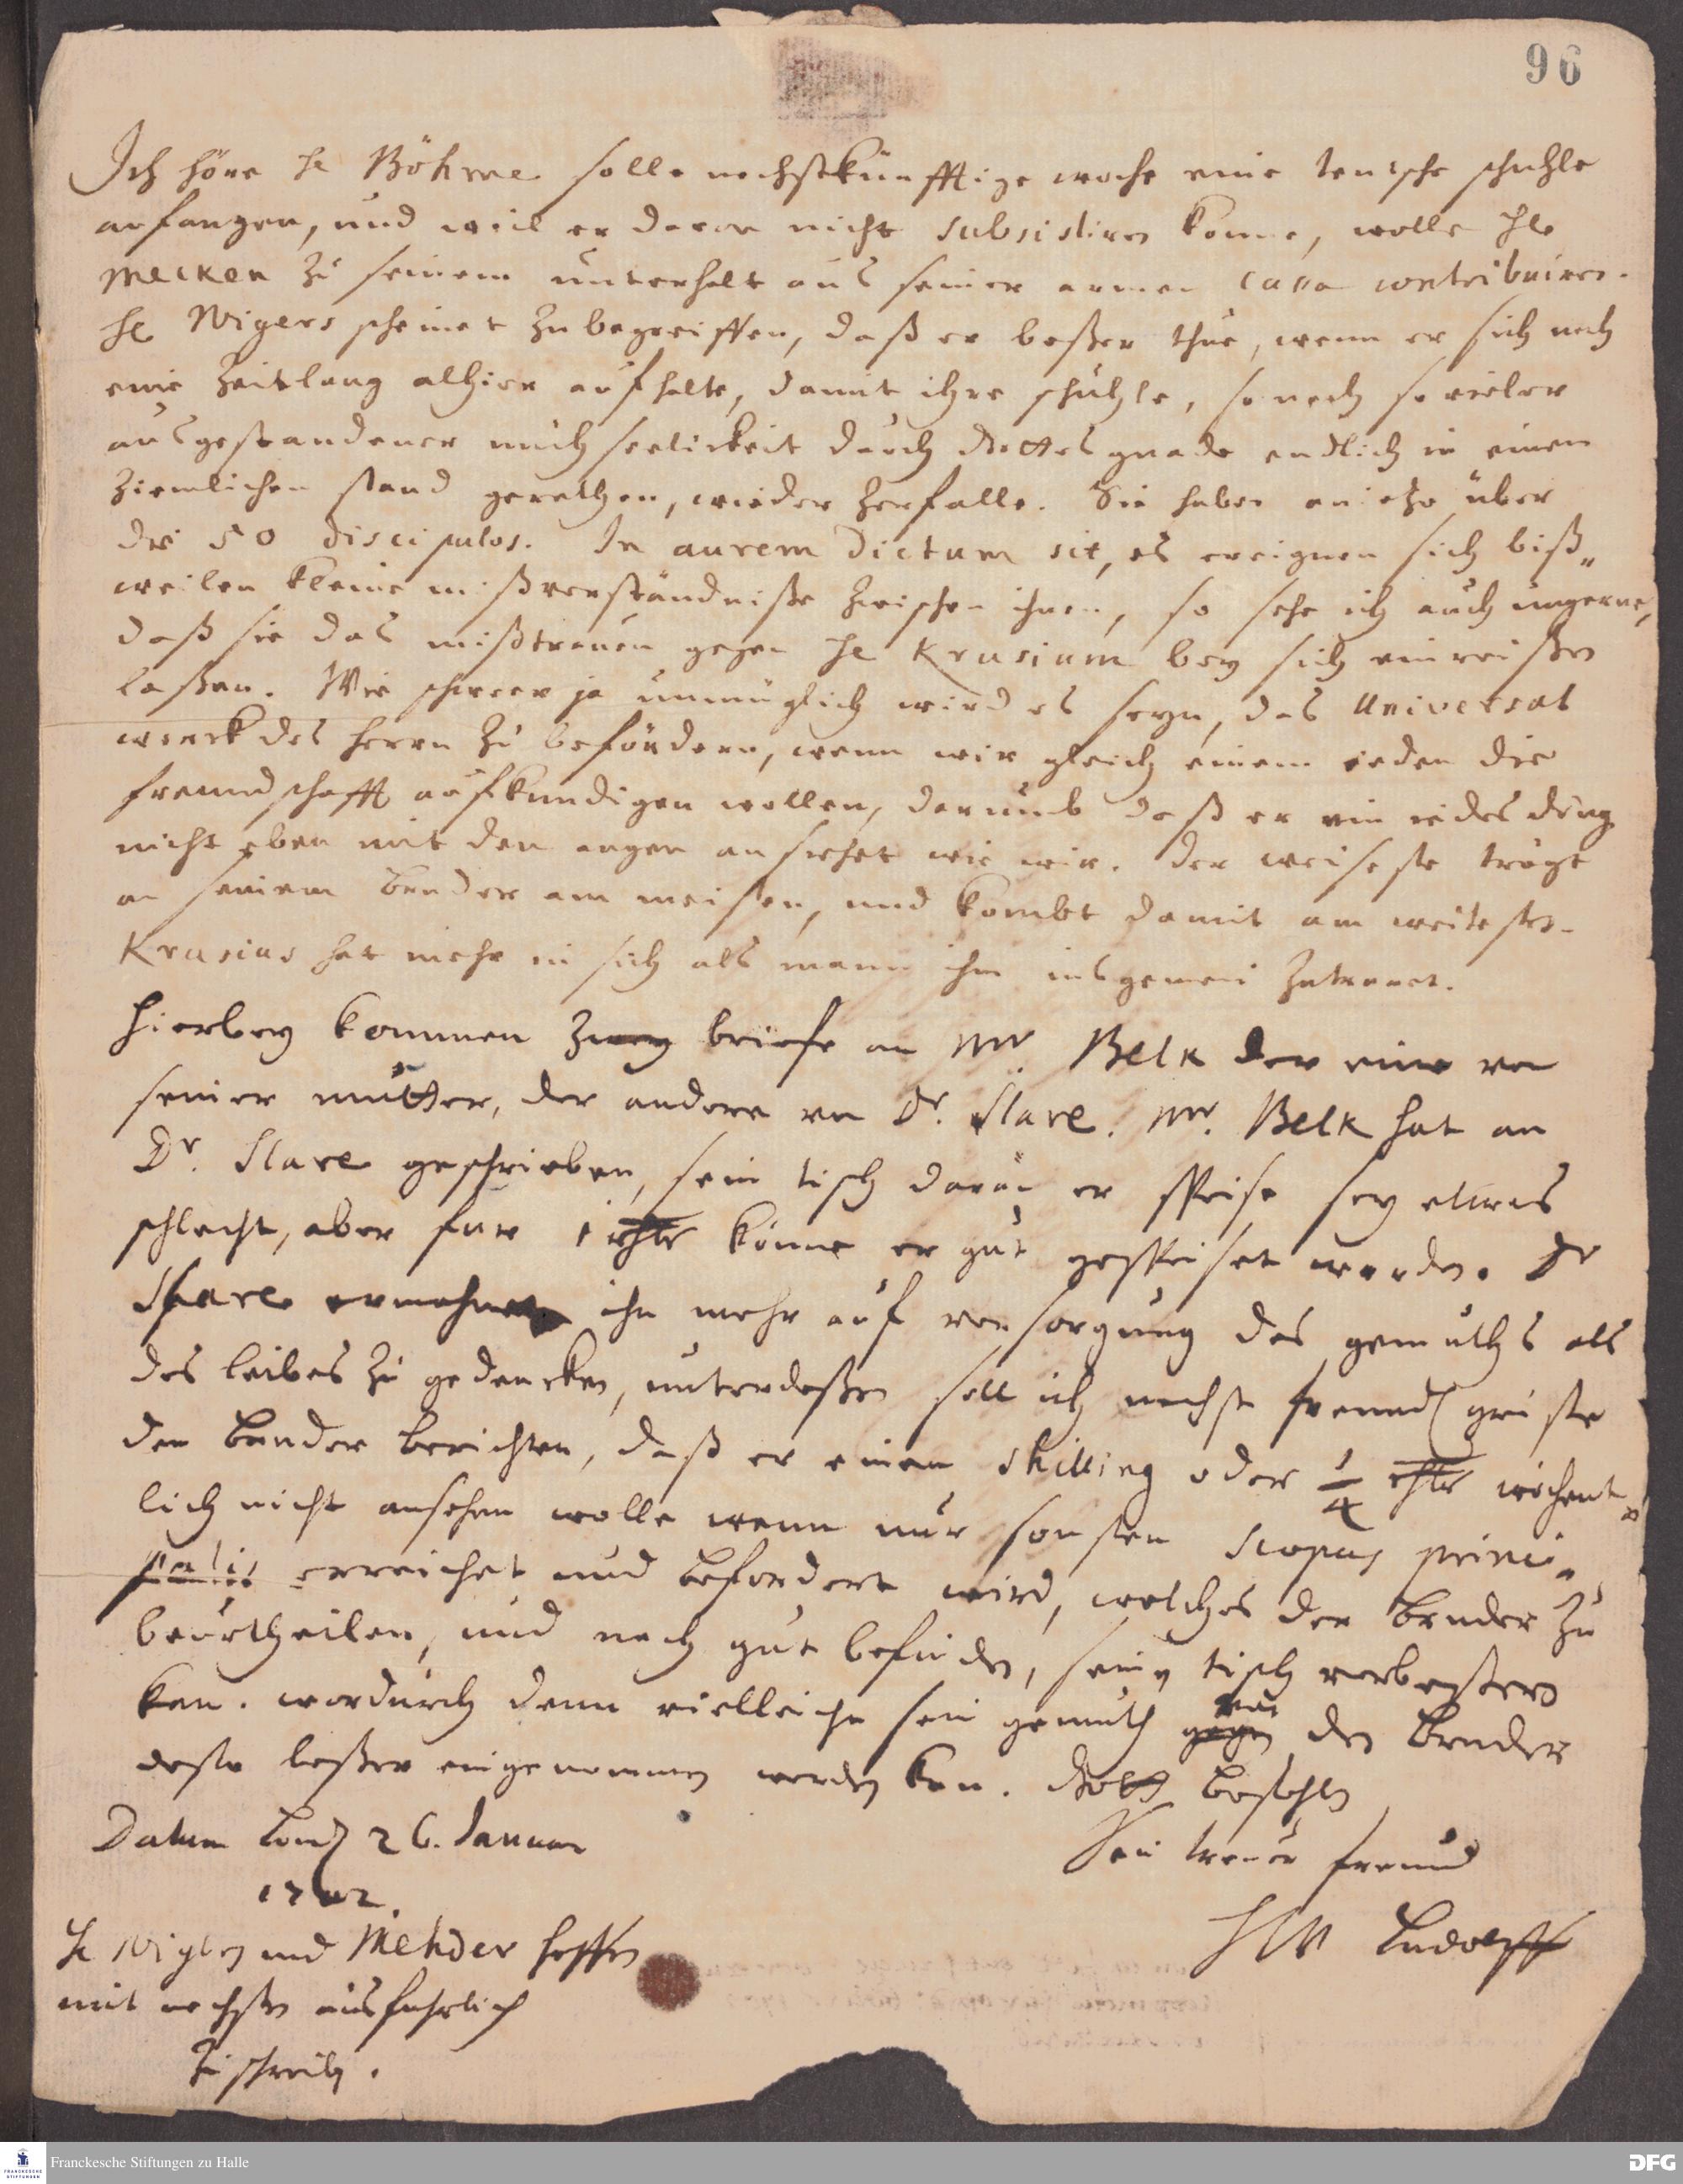 96
Ich höre H Böhme solle nechstkünfftige woche eine teutsche schuhle
anfangen, und weil er davon nicht subsistiren könne, wolle He
Mecken zu seinem unterhalt aus seiner armen cassa contribuiren.
He Wigers scheinet zu begreiffen, daß er beßer thue, wenn er sich noch
eine Zeitlang alhier aufhalte, damit ihre schuhle, so nach so vieler
ausgestandener muhseelickeit durch Gottes gnade endlich in einen
ziemlichen stand gerathen, wieder zerfalle. Sie haben anietzo über
die 50 discipulos. In aurem dictum sit, es ereignen sich biß„
weilen kleine mißverständniße zwischen ihnen, so sehe ich auch ungerne,
daß sie das mißtrauen gegen He Krusium bey sich einreißen
laßen. Wie schweer ja unmüglich wird es seyn, das Universal
werck des Herrn zu befördern, wenn wir gleich einem ieden die
freundschafft aufkundigen wollen, darumb daß er ein iedes ding
nicht eben mit den augen ansiehet wie wir. Der weiseste trägt
an seinem bruder am meisten, und kombt damit am weitesten.
Krusius hat mehr in sich als mann ihm insgemein zutrauet.
Hierbey kommen zwey briefe an Mr. Belk der eine von
seiner mutter, der andere von Dr. Slare. Mr. Belk hat an
Dr. Slare geschrieben, sein tisch daran er speise sey etwas
schlecht, aber fur 1 rthlr könne er gut gespeiset werden. Dr
Slare ermahnet ihn mehr auf versorgung des gemuths als
des leibes zu gedencken, unterdeßen soll ich nechst freundl gruße
den bruder berichten, daß er einen shilling oder 1/4 rthlr wöchent„
lich nicht ansehen wolle wenn nur sonsten scopus princi„
palis erreichet und befordert wird, welches der bruder zu
beurtheilen, und nach gut befinden, seinen tisch verbeßern
kan. wordurch denn vielleicht sein gemuth gegen von den bruder
desto beßer eingenommen werden kan. Gott befohlen
Datum Lond 26. Januar
1702.
Sein treuer freund
HW Ludolff
H Wigers und Mehder hoffen
mit nechsten ausfuhrlich
zu schreiben.
Franckesche Stiftungen zu Halle
FRANCKESCHE STIFTUNGEN
DFG